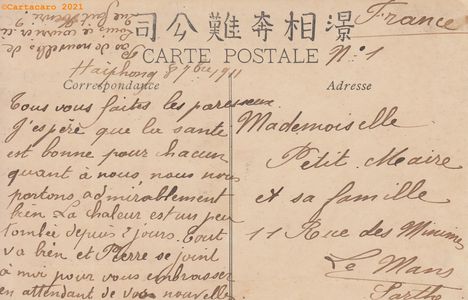 © Cartacaro 2021
司公難奔相源
France
CARTE POSTALE
N° 1
Haiphong 8 7bre 1911
Correspondance
Adresse
Tous vous faites les paresseux
J'espère que la santé
est bonne pour chacun
quant à nous, nous nous
portons admirablement
bien La chaleur est un peu
tombée depuis 2 jours. Tout
va bien et Pierre se joint
à moi pour vous embrasser
en attendant de vos nouvelles
Mademoiselle
Petit Maire
et sa famille
11 Rue des Minimes
Le Mans
Sarthe
Pas de nouvelles de
vous ce courrier-ci.